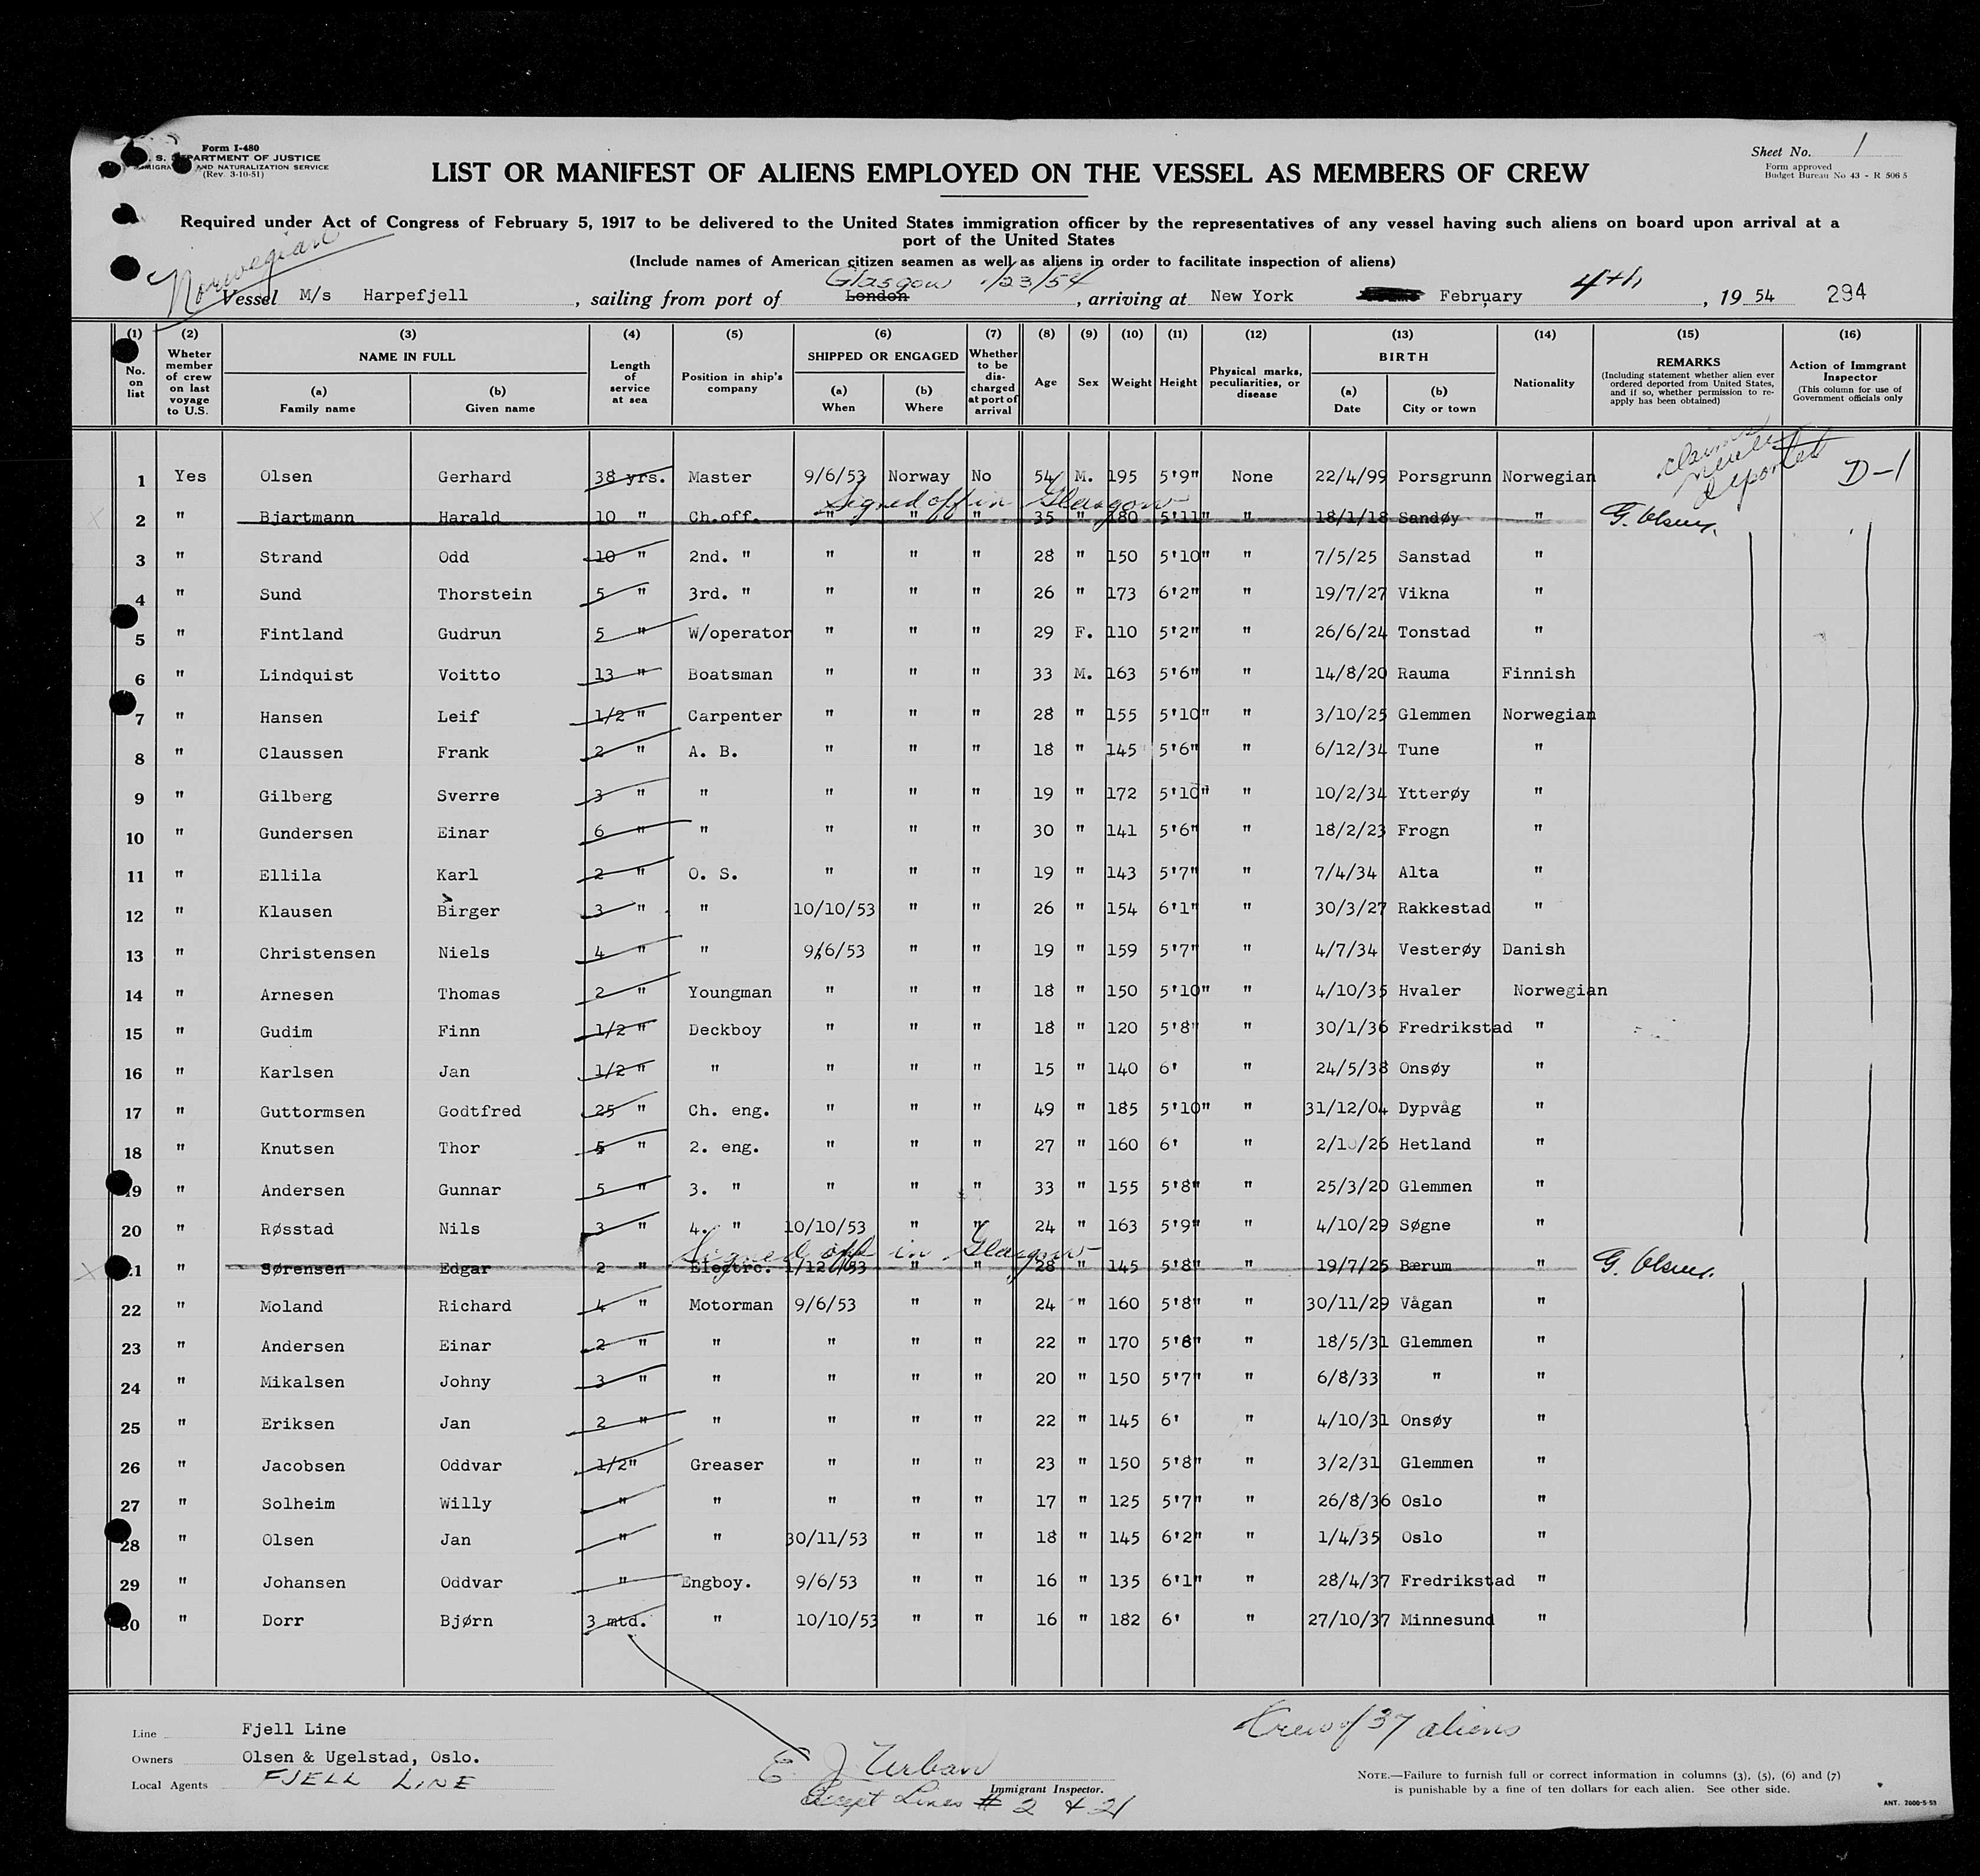 Form I-480
U. S. DEPARTMENT OF JUSTICE
IMMIGRATION AND NATURALIZATION SERVICE
(Rev. 3-10-51)
Sheet No. 1
Form approved
Budget Bureau No 43 - R 506 5
LIST OR MANIFEST OF ALIENS EMPLOYED ON THE VESSEL AS MEMBERS OF CREW
Required under Act of Congress of February 5, 1917 to be delivered to the United States immigration officer by the representatives of any vessel having such aliens on board upon arrival at a
port of the United States
(Include names of American citizen seamen as well as aliens in order to facilitate inspection of aliens)
Norwegian
Glasgow 1/23/54
Vessel M/s Harpefjell, sailing from port of London, arriving at New York February 4th, 19 54 294
(1) (2) (3) (4) (5) (6) (7) (8) (9) (10) (11) (12) (13) (14) (15) (16)
No. on list
Wheter member of crew on last voyage to U.S.
NAME IN FULL
(a) Family name
(b) Given name
Length of service at sea
Position in ship's company
SHIPPED OR ENGAGED
(a) When
(b) Where
Whether to be dis-charged at port of arrival
Age
Sex
Weight
Height
Physical marks, peculiarities, or disease
BIRTH
(a) Date
(b) City or town
Nationality
REMARKS
(Including statement whether alien ever ordered deported from United States, and if so, whether permission to re-apply has been obtained)
Action of Immigrant Inspector
(This column for use of Government officials only
claims never deported
1 Yes Olsen Gerhard 38 yrs. Master 9/6/53 Norway No 54 M. 195 5'9" None 22/4/99 Porsgrunn Norwegian D-1
Signed off in Glasgow
2 " Bjartmann Harald 10 " Ch.off. " " " 35 " 180 5'11" " 18/1/18 Sandøy " G. Olsen.
3 " Strand Odd 10 " 2nd. " " " " 28 " 150 5'10" " 7/5/25 Sanstad "
4 " Sund Thorstein 5 " 3rd. " " " " 26 " 173 6'2" " 19/7/27 Vikna "
5 " Fintland Gudrun 5 " W/operator " " " 29 F. 110 5'2" " 26/6/24 Tonstad "
6 " Lindquist Voitto 13 " Boatsman " " " 33 M. 163 5'6" " 14/8/20 Rauma Finnish
7 " Hansen Leif 1/2 " Carpenter " " " 28 " 155 5'10" " 3/10/25 Glemmen Norwegian
8 " Claussen Frank 2 " A. B. " " " 18 " 145 5'6" " 6/12/34 Tune "
9 " Gilberg Sverre 3 " " " " " 19 " 172 5'10" " 10/2/34 Ytterøy "
10 " Gundersen Einar 6 " " " " " 30 " 141 5'6" " 18/2/23 Frogn "
11 " Ellila Karl 2 " O. S. " " " 19 " 143 5'7" " 7/4/34 Alta "
12 " Klausen Birger 3 " " 10/10/53 " " 26 " 154 6'1" " 30/3/27 Rakkestad "
13 " Christensen Niels 4 " " 9/6/53 " " 19 " 159 5'7" " 4/7/34 Vesterøy Danish
14 " Arnesen Thomas 2 " Youngman " " " 18 " 150 5'10" " 4/10/35 Hvaler Norwegian
15 " Gudim Finn 1/2 " Deckboy " " " 18 " 120 5'8" " 30/1/36 Fredrikstad "
16 " Karlsen Jan 1/2 " " " " " 15 " 140 6' " 24/5/38 Onsøy "
17 " Guttormsen Godtfred 25 " Ch. eng. " " " 49 " 185 5'10" " 31/12/04 Dypvåg "
18 " Knutsen Thor 5 " 2. eng. " " " 27 " 160 6' " 2/10/26 Hetland "
19 " Andersen Gunnar 5 " 3. " " " " 33 " 155 5'8" " 25/3/20 Glemmen "
20 " Røsstad Nils 3 " 4. " 10/10/53 " " 24 " 163 5'9" " 4/10/29 Søgne "
Signed off in Glasgow
21 " Sørensen Edgar 2 " Electr. 1/12/53 " " 28 " 145 5'8" " 19/7/25 Bærum " G. Olsen.
22 " Moland Richard 4 " Motorman 9/6/53 " " 24 " 160 5'8" " 30/11/29 Vågan "
23 " Andersen Einar 2 " " " " " 22 " 170 5'8" " 18/5/31 Glemmen "
24 " Mikalsen Johny 3 " " " " " 20 " 150 5'7" " 6/8/33 " "
25 " Eriksen Jan 2 " " " " " 22 " 145 6' " 4/10/31 Onsøy "
26 " Jacobsen Oddvar 1/2" Greaser " " " 23 " 150 5'8" " 3/2/31 Glemmen "
27 " Solheim Willy " " " " " 17 " 125 5'7" " 26/8/36 Oslo "
28 " Olsen Jan " " 30/11/53 " " 18 " 145 6'2" " 1/4/35 Oslo "
29 " Johansen Oddvar " Engboy. 9/6/53 " " 16 " 135 6'1" " 28/4/37 Fredrikstad "
30 " Dorr Bjørn 3 mtd. " 10/10/53 " " 16 " 182 6' " 27/10/37 Minnesund "
Line Fjell Line
Owners Olsen & Ugelstad, Oslo.
Local Agents FJELL LINE
E. J Urban
Immigrant Inspector.
Except Lines # 2 & 21
Crew of 37 aliens
NOTE.—Failure to furnish full or correct information in columns (3), (5), (6) and (7)
is punishable by a fine of ten dollars for each alien. See other side.
ANT. 2000-5-53